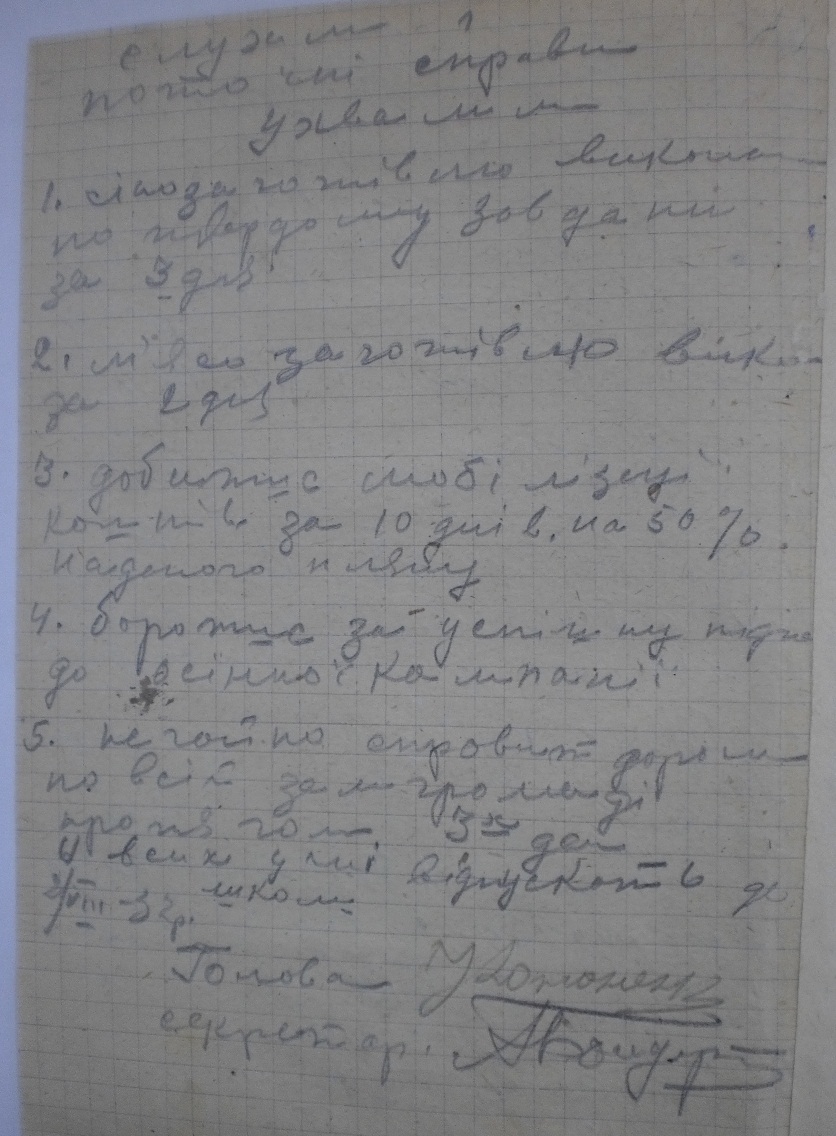 слухали
поточні справи
ухвалили
1. сінозаготівлю викона
по твердому завдані
за 3 дні
2. м'ясозаготівлю вико
за 2 дні
3. добитис мобілізації
коштів за 10 днів. на 50%.
наданого пляну
4. боротис за успішну підго
до осінної кампанії
5. негайно справит дороги
по всій землегромаді
протягом 3х ден
6 всих учні відпускають до
школи
VIII-32р.
Голова Кононенко
секретар. Бондар